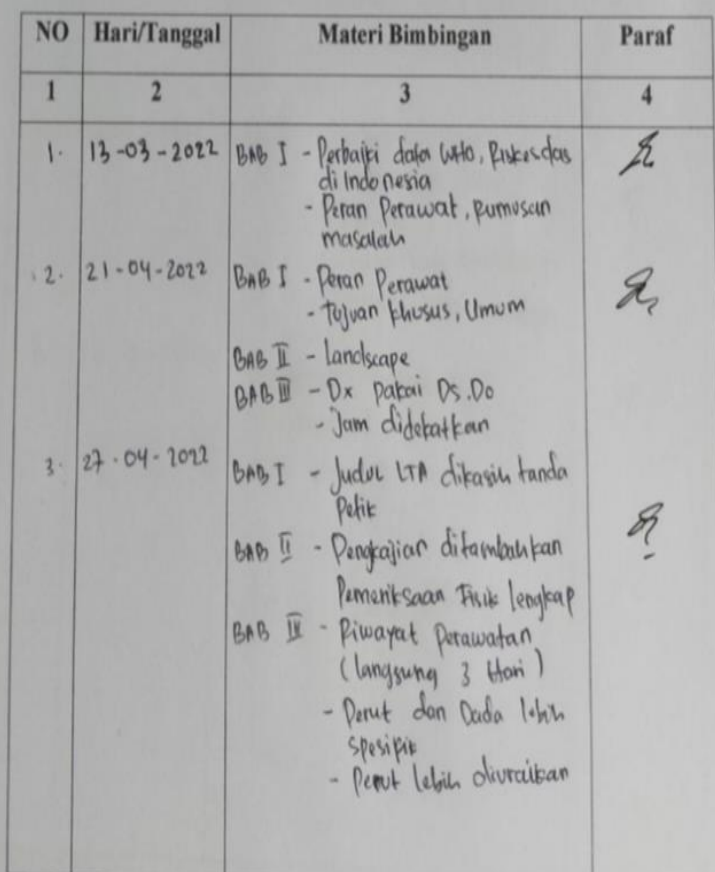 NO Hari/Tanggal Materi Bimbingan Paraf
1 2 3 4
1. 13-03-2022 BAB I - Perbaiki data WHO, Riskesdas
di Indonesia
- Peran Perawat, Rumusan
masalah
2. 21-04-2022 BAB I - Peran Perawat
- Tujuan khusus, Umum
BAB II - Landscape
BAB III - Dx pakai Ds.Do
- Jam didekatkan
3. 27-04-2022 BAB I - Judul LTA dikasih tanda
Petik
BAB II - Pengkajian ditambahkan
Pemeriksaan Fisik lengkap
BAB IV - Riwayat Perawatan
(langsung 3 Hari)
- Perut dan Dada lebih
spesifik
- Perut lebih diuraikan